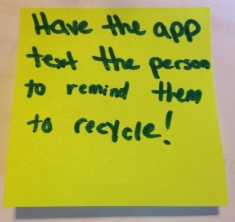 Have the app
text the person
to remind them
to recycle!